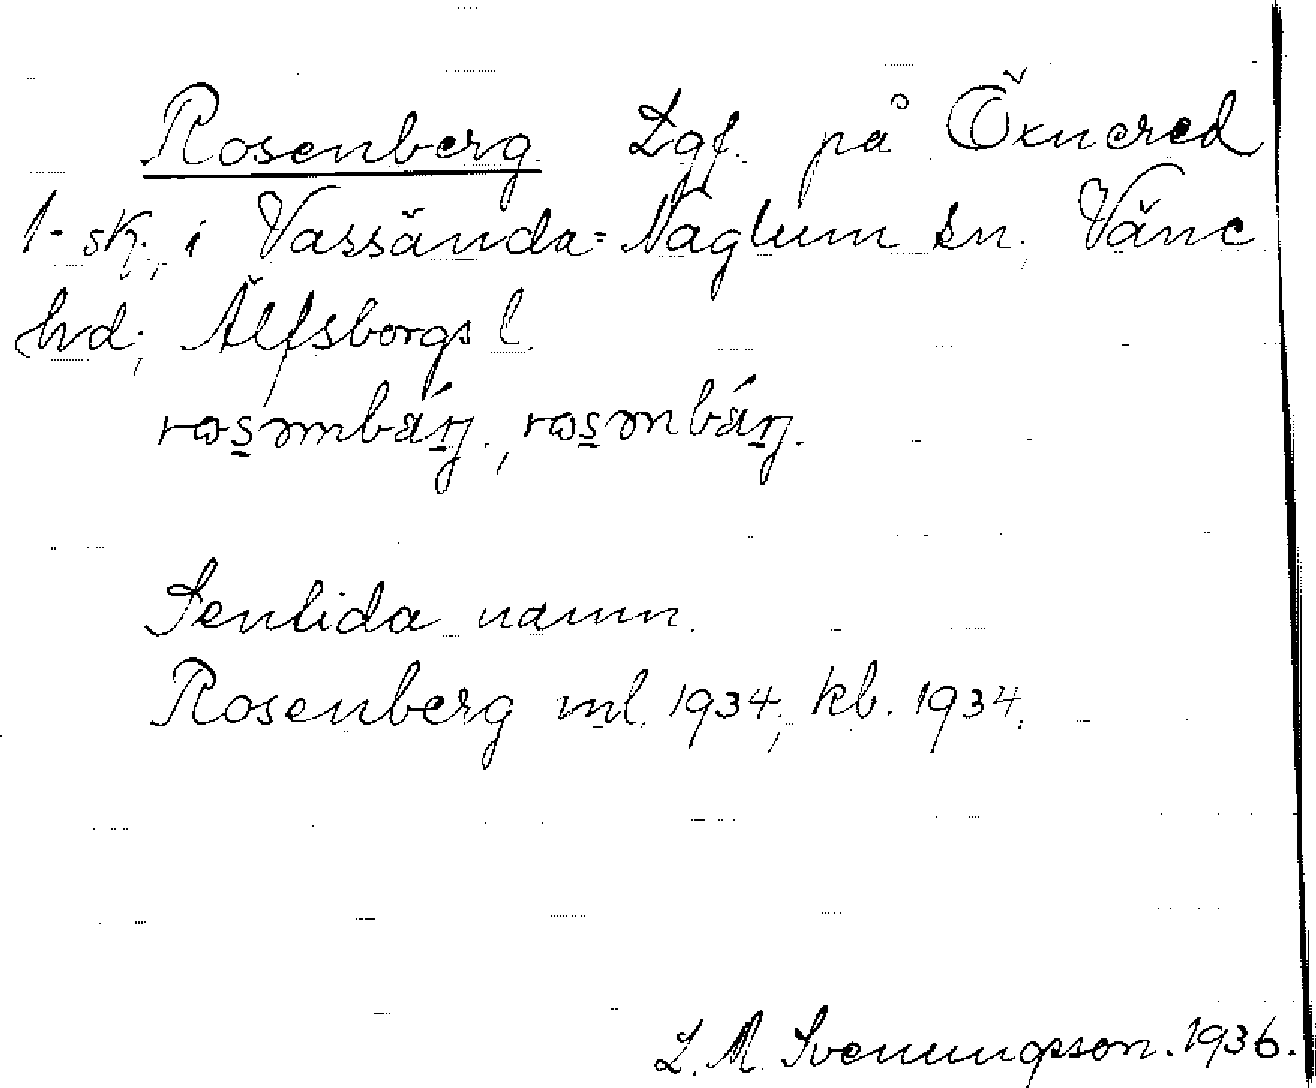 Rosenberg Lgf. på Öxnered
1-sk., i Vassända=Naglum sn, Väne
hd, Älfsborgs l.
Sentida namn.
Rosenberg ml. 1934, kb. 1934.
L. M. Svenungsson. 1936.